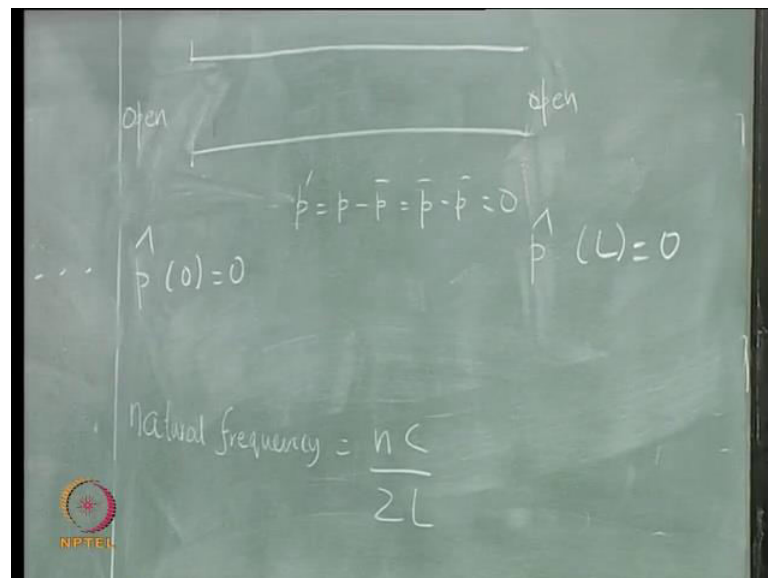 open open
p' = p - p̄ = p̄ - p̄ = 0
... p̂ (0) = 0 p̂ (L) = 0
natural frequency = nC / 2L
NPTEL